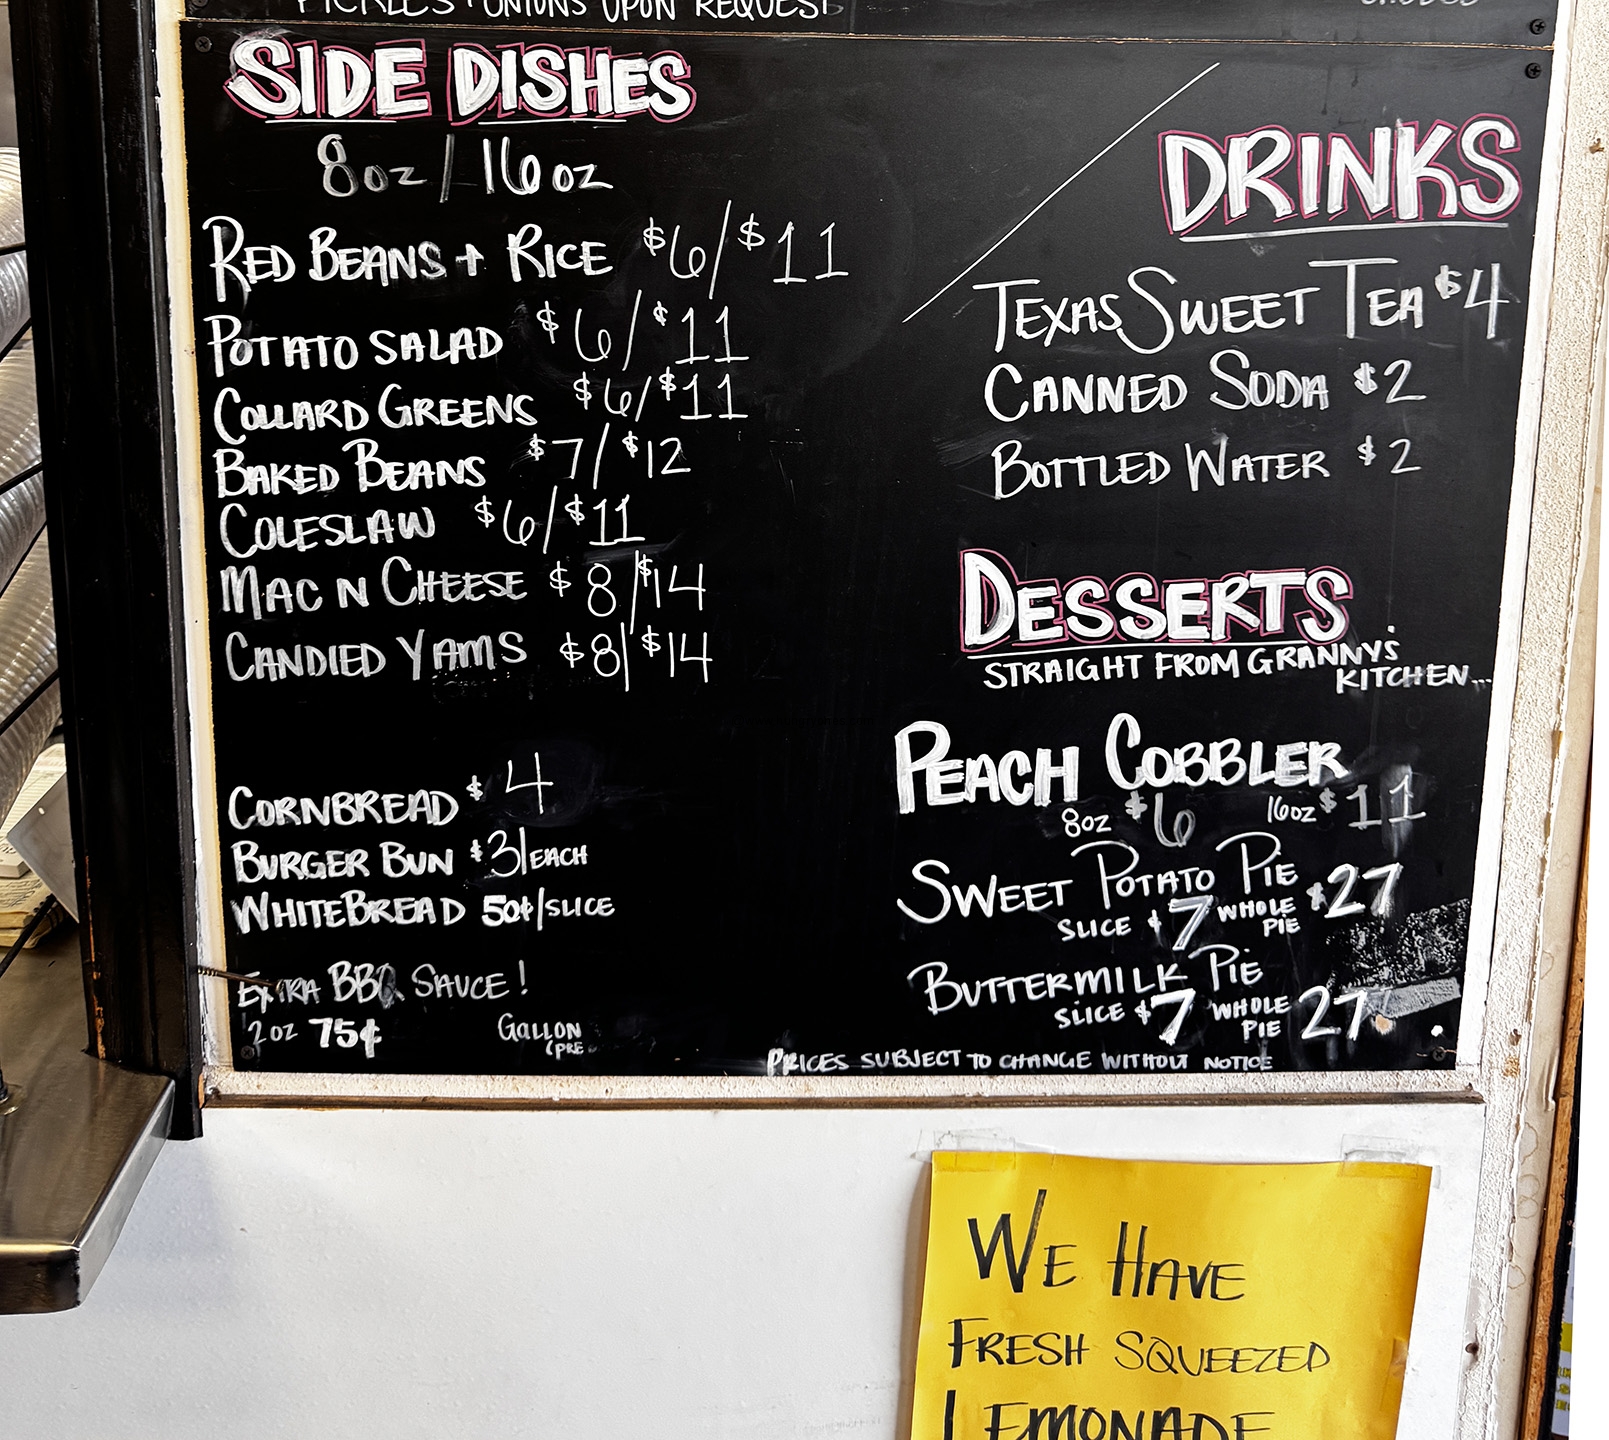 PICKLES + ONIONS UPON REQUEST
SIDE DISHES
8oz / 16oz
RED BEANS + RICE $6/$11
POTATO SALAD $6/$11
COLLARD GREENS $6/$11
BAKED BEANS $7/$12
COLESLAW $6/$11
MAC N CHEESE $8/$14
CANDIED YAMS $8/$14
CORNBREAD $4
BURGER BUN $3/EACH
WHITEBREAD 50¢/SLICE
EXTRA BBQ SAUCE!
2oz 75¢ GALLON
(PRE
DRINKS
TEXAS SWEET TEA $4
CANNED SODA $2
BOTTLED WATER $2
DESSERTS
STRAIGHT FROM GRANNY'S
KITCHEN...
PEACH COBBLER
8oz $6 16oz $11
SWEET POTATO PIE
SLICE $7 WHOLE PIE $27
BUTTERMILK PIE
SLICE $7 WHOLE PIE 27
PRICES SUBJECT TO CHANGE WITHOUT NOTICE
WE HAVE
FRESH SQUEEZED
LEMONADE